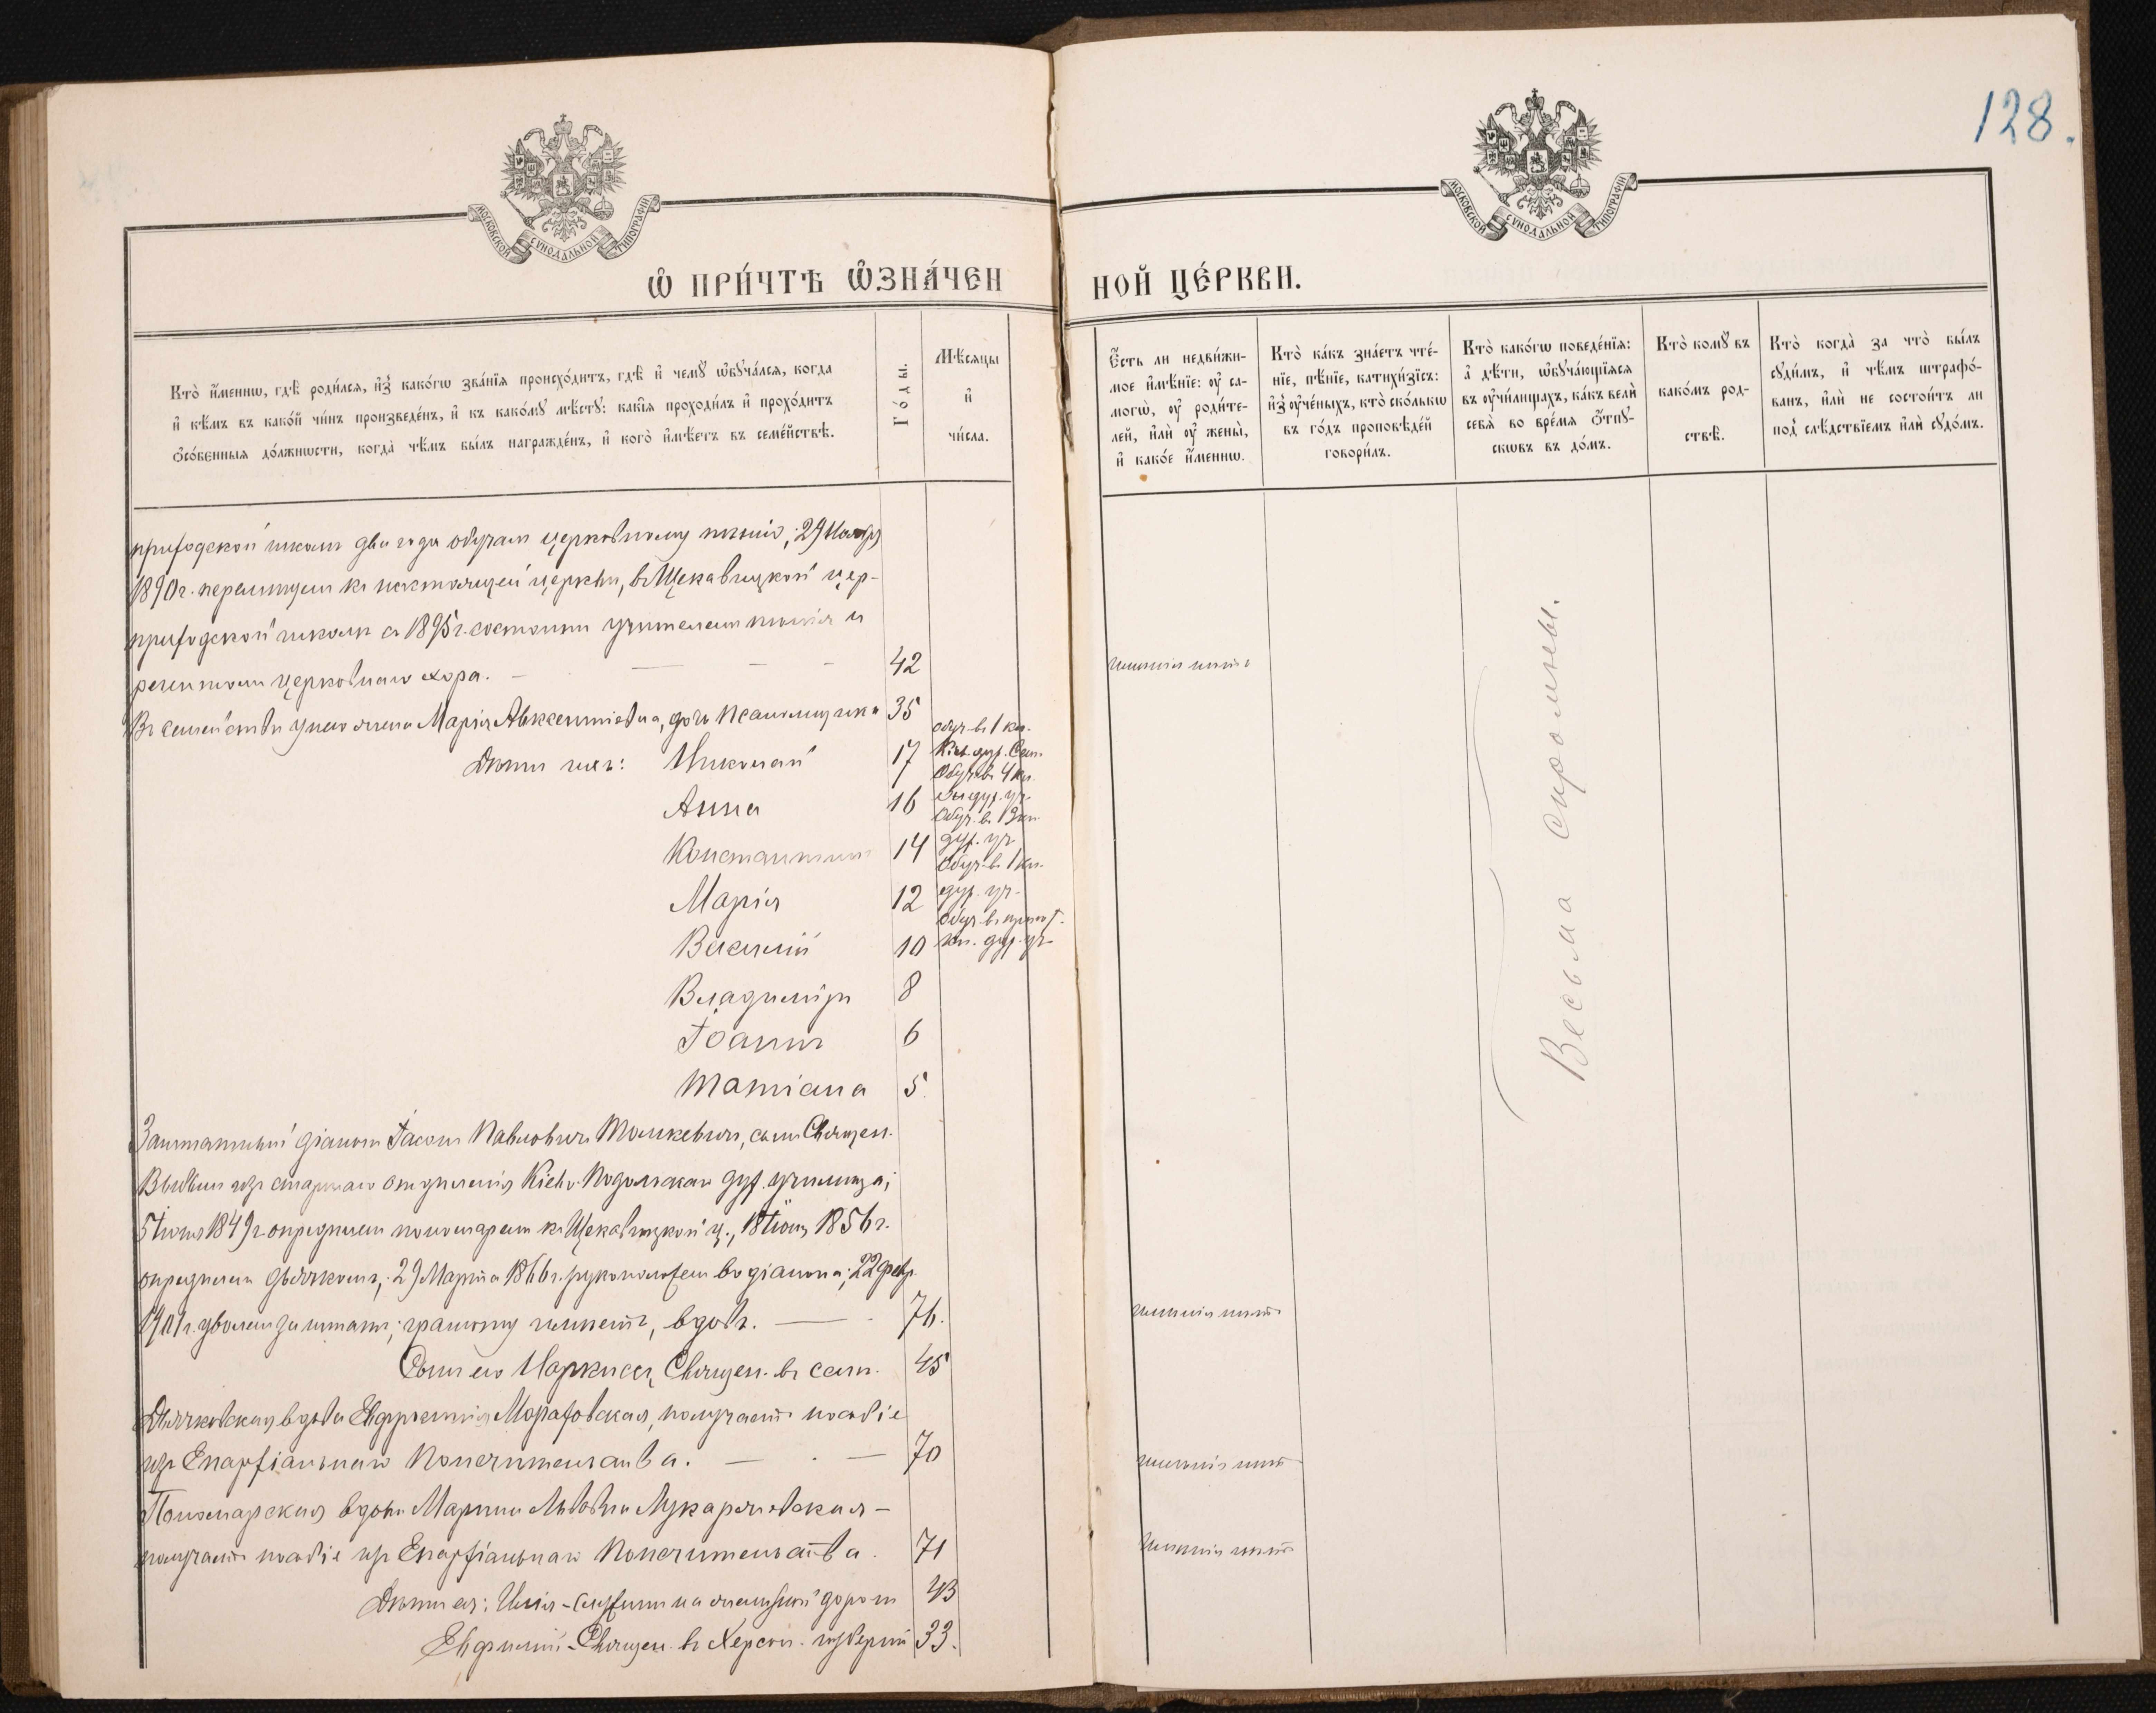 128.
МОСКОВСКОЙ СУНОДАЛЬНОЙ ТИПОГРАФІИ
МОСКОВСКОЙ СУНОДАЛЬНОЙ ТИПОГРАФІИ
Ѡ҆ ПРИ́ЧТѢ Ѡ҆ЗНА́ЧЕН
НОЙ ЦЕ́РКВИ.
Кто̀ и҆́меннѡ, гдѣ̀ роди́лсѧ, и҆з̾ како́гѡ зва́нїѧ происхо́дитъ, гдѣ̀ и҆ чемꙋ̀ ѡ҆бꙋча́лсѧ, когда̀
и҆ кѣ́мъ въ како́й чи́нъ произведе́нъ, и҆ къ како́мꙋ мѣ́стꙋ: какі̑ѧ проходи́лъ и҆ прохо́дитъ
ѻ҆со́бенныѧ до́лжнѡсти, когда̀ чѣ́мъ бы́лъ награжде́нъ, и҆ кого̀ и҆мѣ́етъ въ семе́йствѣ.
Го́ды.
Мѣ́сѧцы
и҆
чи́сла.
Е҆́сть ли недви́жи-
мое и҆мѣ́нїе: ᲂу҆ са-
могѡ̀, ᲂу҆ роди́те-
лей, и҆лѝ ᲂу҆ жены̀,
и҆ како́е и҆́меннѡ.
Кто̀ ка́къ зна́етъ чте́-
нїе, пѣ́нїе, катихи́зїсъ:
и҆з̾ ᲂу҆че́ныхъ, кто̀ ско́лькѡ
въ го́дъ проповѣ́дей
говори́лъ.
Кто̀ како́гѡ поведе́нїѧ:
а҆ дѣ́ти, ѡ҆бꙋча́ющїѧсѧ
въ ᲂу҆чи́лищахъ, ка́къ велѝ
себѧ̀ во вре́мѧ ѻ҆́тпꙋ-
скѡвъ въ до́мъ.
Кто̀ комꙋ̀ въ
како́мъ род-
ствѣ̀.
Кто̀ когда̀ за что̀ бы́лъ
сꙋди́мъ, и҆ чѣ́мъ штрафо́-
ванъ, и҆лѝ не состои́тъ ли
под̾ слѣ́дствїемъ и҆лѝ сꙋдо́мъ.
приходской школѣ два года обучалъ церковному пѣнію; 29 Ноября
1890 г. перемѣщенъ къ настоящей церкви, въ Щекавицкой цер-
приходской школѣ съ 1895 г. состоитъ учителемъ пѣнія и
регентомъ церковнаго хора. — 42 имѣнія нѣтъ
Въ семействѣ у него жена Марія Авксентіевна, дочь псаломщика 35
Дѣти ихъ: Николай 17 обуч. въ 1 кл. Кіев. дух. Сем.
Анна 16 Обуч. въ 4 кл. дух. уч.
Константинъ 14 Обуч. въ 3 кл. дух. уч.
Марія 12 Обуч. въ 1 кл. дух. уч.
Василій 10 Обуч. въ пригот. кл. дух. уч.
Владиміръ 8
Іоаннъ 6
Татіана 5.
Весьма скромны.
Заштатный діаконъ Іасонъ Павловичъ Томкевичъ, сынъ Священ.
Выбылъ изъ старшаго отдѣленія Кіево-Подольскаго дух. училища;
5 Іюня 1849 г. опредѣленъ пономаремъ къ Щекавицкой ц., 18 Іюня 1856 г.
опредѣленъ дьячкомъ, 29 Марта 1866 г. рукоположенъ во діакона; 22 Февр.
1901 г. уволенъ за штатъ; грамоту имѣетъ, вдовъ. — 76. имѣнія нѣтъ
Сынъ его Наркиссъ, Священ. въ селѣ. 45
Дьячковская вдова Евфросинія Мораховская, получаетъ пособіе
изъ Епархіальнаго Попечительства. — 70 имѣнія нѣтъ
Пономарская вдова Марина Львовна Лукаржевская -
получаетъ пособіе изъ Епархіальнаго Попечительства. 71 имѣнія нѣтъ
Дѣти ея: Илія - служитъ на желѣзной дорогѣ 43
Евфимій - Священ. въ Херсон. губерніи 33.